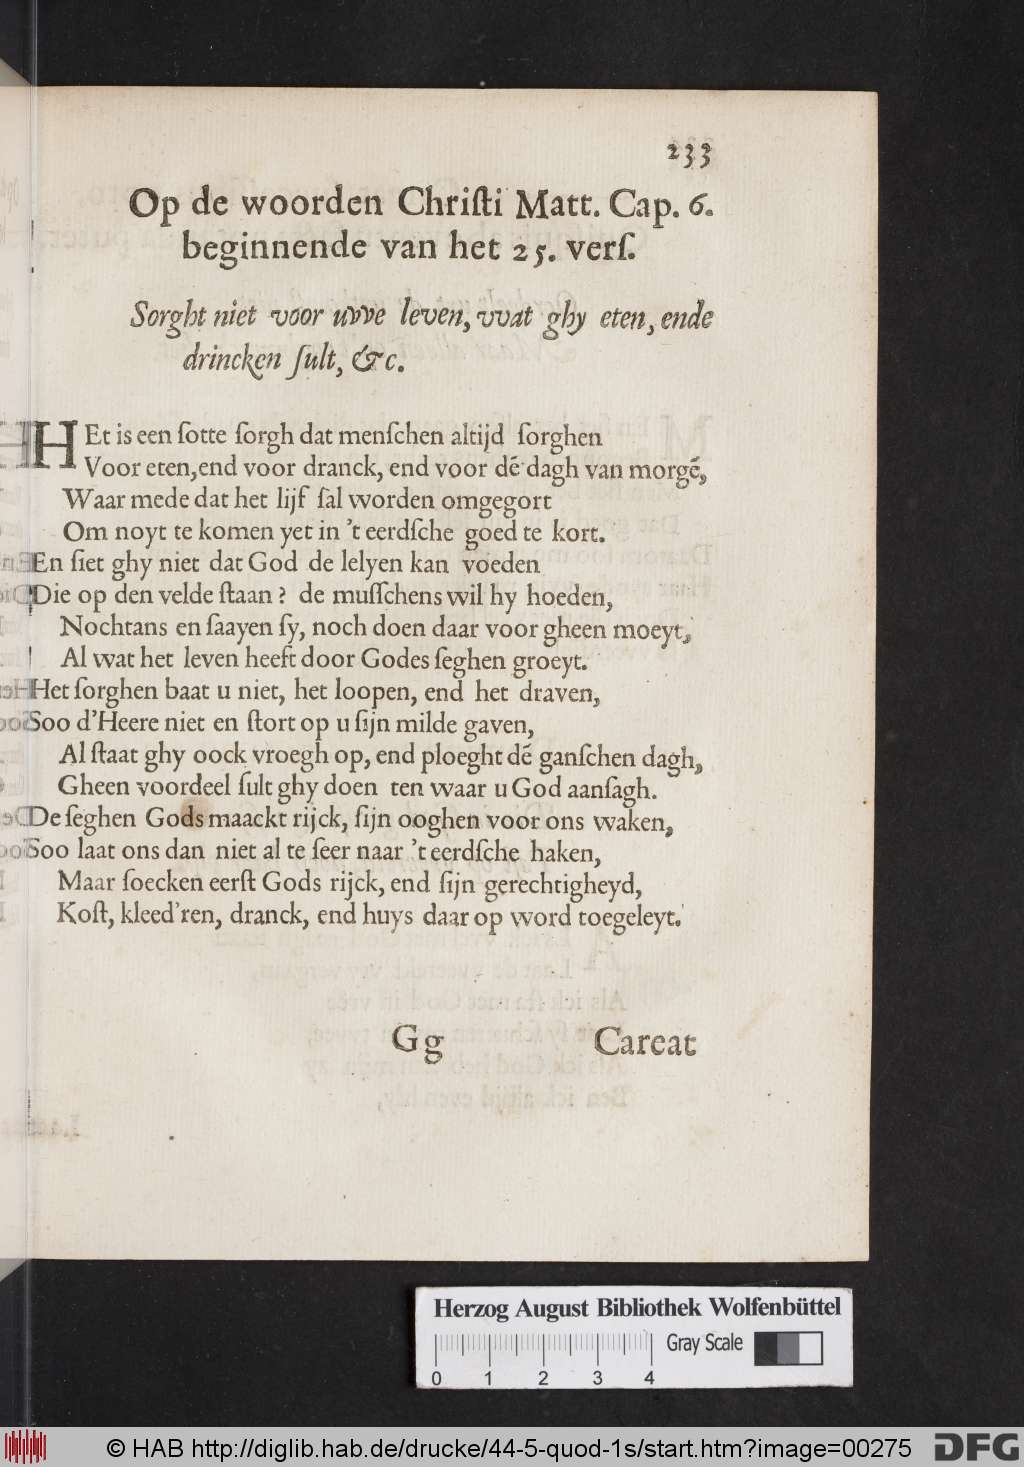 233
Op de woorden Chriſti Matt. Cap. 6.
beginnende van het 25. verſ.
Sorght niet voor uvve leven, vvat ghy eten, ende
drincken ſult, &c.
HEt is een ſotte ſorgh dat menſchen altijd ſorghen
Voor eten, end voor dranck, end voor dē dagh van morgē,
Waar mede dat het lijf ſal worden omgegort
Om noyt te komen yet in 't eerdſche goed te kort.
En ſiet ghy niet dat God de lelyen kan voeden
Die op den velde ſtaan? de muſſchens wil hy hoeden,
Nochtans en ſaayen ſy, noch doen daar voor gheen moeyt,
Al wat het leven heeft door Godes ſeghen groeyt.
Het ſorghen baat u niet, het loopen, end het draven,
Soo d'Heere niet en ſtort op u ſijn milde gaven,
Al ſtaat ghy oock vroegh op, end ploeght dē ganſchen dagh,
Gheen voordeel ſult ghy doen ten waar u God aanſagh.
De ſeghen Gods maackt rijck, ſijn ooghen voor ons waken,
Soo laat ons dan niet al te ſeer naar 't eerdſche haken,
Maar ſoecken eerſt Gods rijck, end ſijn gerechtigheyd,
Koſt, kleed'ren, dranck, end huys daar op word toegeleyt.
Gg Careat
Herzog August Bibliothek Wolfenbüttel
Gray Scale
0 1 2 3 4
© HAB http://diglib.hab.de/drucke/44-5-quod-1s/start.htm?image=00275
DFG